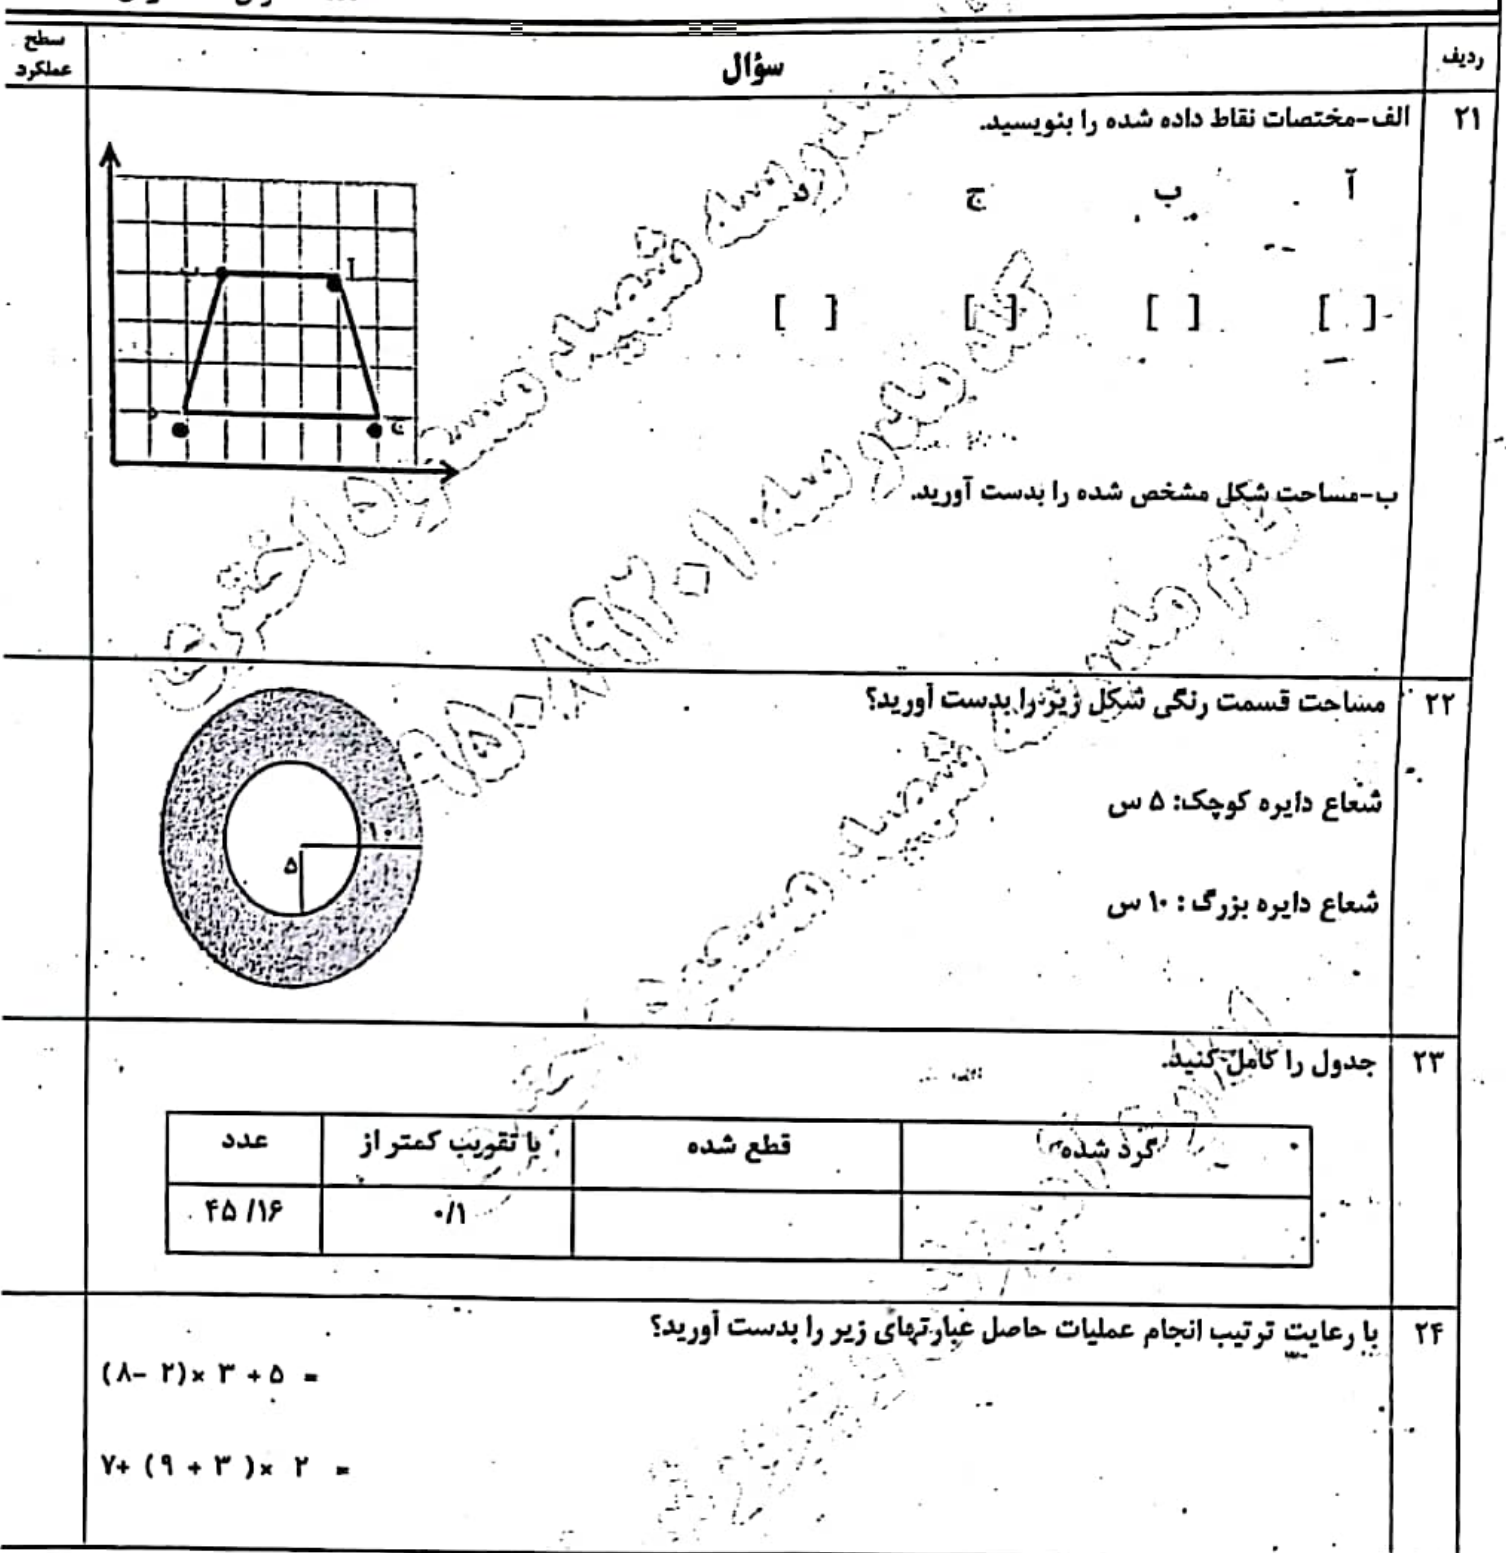 ردیف سؤال سطح عملکرد
۲۱ الف-مختصات نقاط داده شده را بنویسید.
آ ب ج د
[ ] [ ] [ ] [ ]
آ
ب
ج
د
ب-مساحت شکل مشخص شده را بدست آورید.
۲۲ مساحت قسمت رنگی شکل زیر را بدست آورید؟
شعاع دایره کوچک: ۵ س
شعاع دایره بزرگ : ۱۰ س
۱۰
۵
۲۳ جدول را کامل کنید.
عدد با تقریب کمتر از قطع شده گرد شده
۴۵/۱۶ ۰/۱
۲۴ با رعایت ترتیب انجام عملیات حاصل عبارتهای زیر را بدست آورید؟
(۸− ۲)× ۳ +۵ =
۷+ (۹ + ۳ )× ۲ =
مدرسه شهید مسعود اختری
کد مدرسه ۹۵۰۸۹۲۰۱
نام مدرسه شهید مسعود اختری